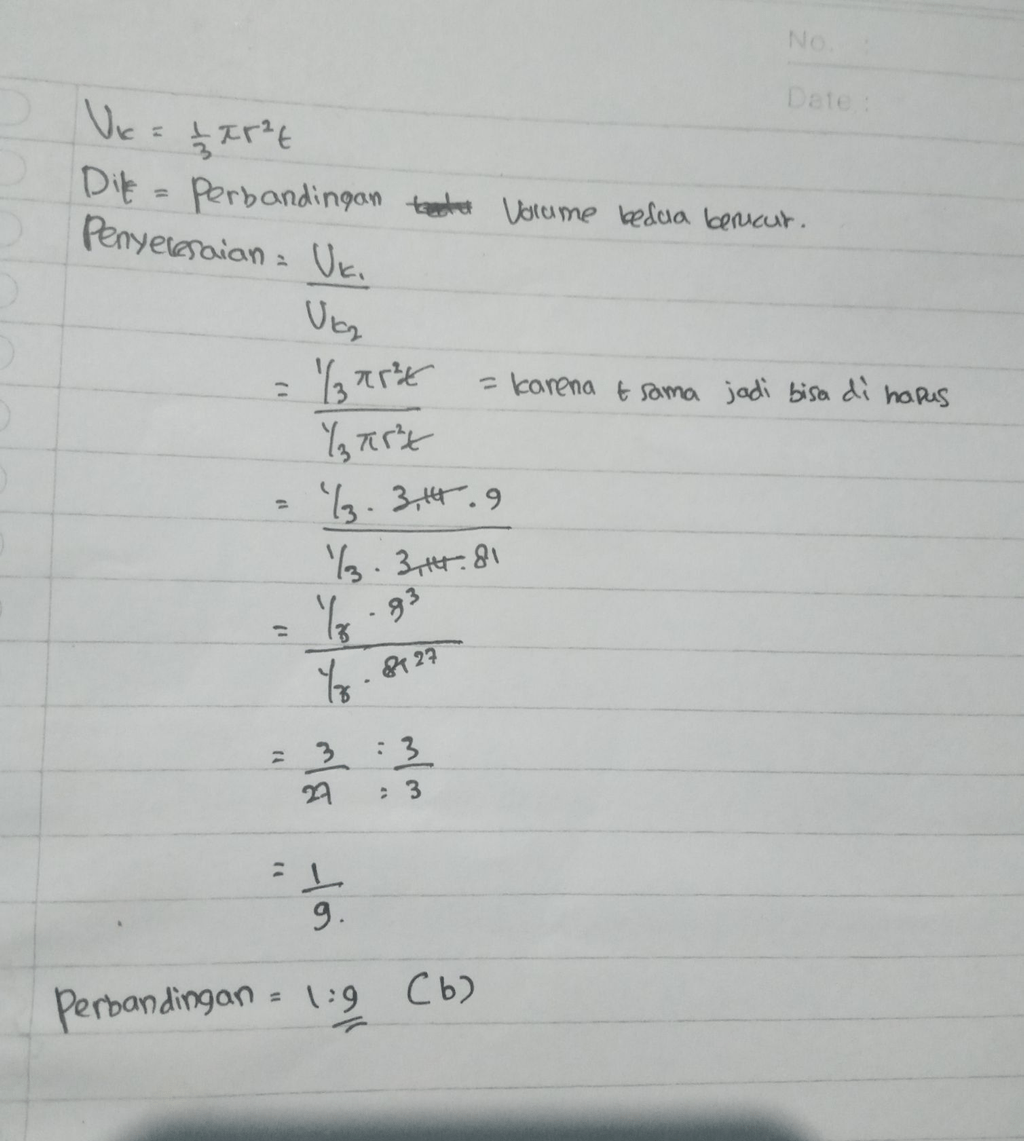 No. :
Date :
Vk = 1/3 πr²t
Dit = Perbandingan Volume kedua kerucut.
Penyelesaian = Vk₁
Vk₂
= 1/3 πr²t = karena t sama jadi bisa di hapus
1/3 πr²t
= 1/3 . 3,14 . 9
1/3 . 3,14 . 81
= 1/3 . 9 3
1/3 . 81 27
= 3 : 3
27 : 3
= 1
9.
Perbandingan = 1:9 (b)